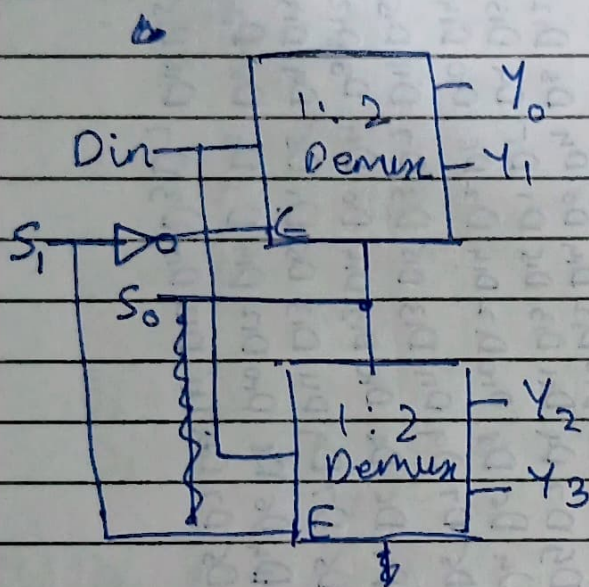 1:2
Demux
Y0
Y1
Din
E
S1
S0
1:2
Demux
Y2
Y3
E